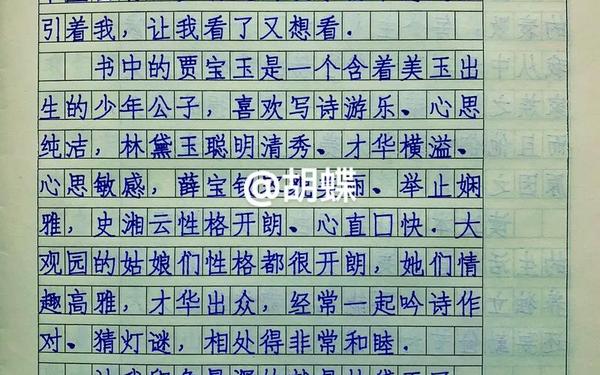 引着我，让我看了又想看.
书中的贾宝玉是一个含着美玉出
生的少年公子，喜欢写诗游乐、心思
纯洁，林黛玉聪明清秀、才华横溢、
心思敏感，薛宝 丽、举止娴
@胡蝶
雅，史湘云性格开朗、心直口快.大
观园的姑娘们性格都很开朗，她们情
趣高雅，才华出众，经常一起吟诗作
对、猜灯谜，相处得非常和睦.